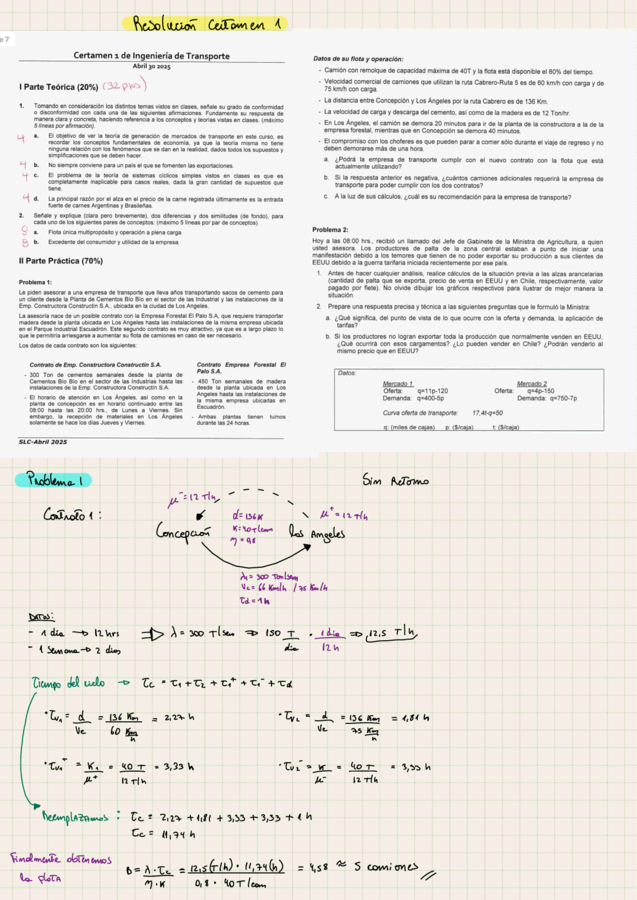 Resolución Certamen 1
e 7
Certamen 1 de Ingeniería de Transporte
Abril 30 2025
I Parte Teórica (20%) (32 pts)
1. Tomando en consideración los distintos temas vistos en clases, señale su grado de conformidad
o disconformidad con cada una de las siguientes afirmaciones. Fundamente su respuesta de
manera clara y concreta, haciendo referencia a los conceptos y teorías vistas en clases. (máximo
5 líneas por afirmación).
4 a. El objetivo de ver la teoría de generación de mercados de transporte en este curso, es
recordar los conceptos fundamentales de economía, ya que la teoría misma no tiene
ninguna relación con los fenómenos que se dan en la realidad, dados todos los supuestos y
simplificaciones que se deben hacer.
4 b. No siempre conviene para un país el que se fomenten las exportaciones.
4 c. El problema de la teoría de sistemas cíclicos simples vistos en clases es que es
completamente inaplicable para casos reales, dada la gran cantidad de supuestos que
tiene.
4 d. La principal razón por el alza en el precio de la carne registrada últimamente es la entrada
fuerte de carnes Argentinas y Brasileñas.
2. Señale y explique (clara pero brevemente), dos diferencias y dos similitudes (de fondo), para
cada uno de los siguientes pares de conceptos: (máximo 5 líneas por par de conceptos).
8 a. Flota única multipropósito y operación a plena carga
8 b. Excedente del consumidor y utilidad de la empresa.
II Parte Práctica (70%)
Problema 1:
Le piden asesorar a una empresa de transporte que lleva años transportando sacos de cemento para
un cliente desde la Planta de Cementos Bío Bío en el sector de las Industrial y las instalaciones de la
Emp. Constructora Constructin S.A., ubicada en la ciudad de Los Ángeles.
La asesoría nace de un posible contrato con la Empresa Forestal El Palo S.A, que requiere transportar
madera desde la planta ubicada en Los Ángeles hasta las instalaciones de la misma empresa ubicada
en el Parque Industrial Escuadrón. Este segundo contrato es muy atractivo, ya que es a largo plazo lo
que le permitiría arriesgarse a aumentar su flota de camiones en caso de ser necesario.
Los datos de cada contrato son los siguientes:
Contrato de Emp. Constructora Constructin S.A.
- 300 Ton de cementos semanales desde la planta de
Cementos Bío Bío en el sector de las Industrias hasta las
instalaciones de la Emp. Constructora Constructin S.A.
- El horario de atención en Los Ángeles, así como en la
planta de concepción es en horario continuado entre las
08:00 hasta las 20:00 hrs., de Lunes a Viernes. Sin
embargo, la recepción de materiales en Los Ángeles
solamente se hace los días Jueves y Viernes.
Contrato Empresa Forestal El
Palo S.A.
- 450 Ton semanales de madera
desde la planta ubicada en Los
Ángeles hasta las instalaciones de
la misma empresa ubicarías en
Escuadrón.
- Ambas plantas tienen turnos
durante las 24 horas.
SLC-Abril 2025
Datos de su flota y operación:
- Camión con remolque de capacidad máxima de 40T y la flota está disponible el 80% del tiempo.
- Velocidad comercial de camiones que utilizan la ruta Cabrero-Ruta 5 es de 60 km/h con carga y de
75 km/h con carga.
- La distancia entre Concepción y Los Ángeles por la ruta Cabrero es de 136 Km.
- La velocidad de carga y descarga del cemento, así como de la madera es de 12 Ton/hr.
- En Los Ángeles, el camión se demora 20 minutos para ir de la planta de la constructora a la de la
empresa forestal, mientras que en Concepción se demora 40 minutos.
- El compromiso con los choferes es que pueden parar a comer sólo durante el viaje de regreso y no
deben demorarse más de una hora.
a. ¿Podrá la empresa de transporte cumplir con el nuevo contrato con la flota que está
actualmente utilizando?
b. Si la respuesta anterior es negativa, ¿cuántos camiones adicionales requerirá la empresa de
transporte para poder cumplir con los dos contratos?
c. A la luz de sus cálculos, ¿cuál es su recomendación para la empresa de transporte?
Problema 2:
Hoy a las 08:00 hrs., recibió un llamado del Jefe de Gabinete de la Ministra de Agricultura, a quien
usted asesora. Los productores de palta de la zona central estaban a punto de iniciar una
manifestación debido a los temores que tienen de no poder exportar su producción a sus clientes de
EEUU debido a la guerra tarifaria iniciada recientemente por ese país.
1. Antes de hacer cualquier análisis, realice cálculos de la situación previa a las alzas arancelarias
(cantidad de palta que se exporta, precio de venta en EEUU y en Chile, respectivamente, valor
pagado por flete). No olvide dibujar los gráficos respectivos para ilustrar de mejor manera la
situación.
2. Prepare una respuesta precisa y técnica a las siguientes preguntas que le formuló la Ministra:
a. ¿Qué significa, del punto de vista de lo que ocurre con la oferta y demanda, la aplicación de
tarifas?
b. Si los productores no logran exportar toda la producción que normalmente venden en EEUU,
¿Qué ocurrirá con esos cargamentos? ¿Lo pueden vender en Chile? ¿Podrán venderlo al
mismo precio que en EEUU?
Datos:
Mercado 1 Mercado 2
Oferta: q=11p-120 Oferta: q=4p-150
Demanda: q=400-5p Demanda: q=750-7p
Curva oferta de transporte: 17,4t-q=50
q: (miles de cajas) p: ($/caja) t: ($/caja)
Problema 1
Sin Retorno
Contrato 1:
μ⁻=12 T/h
d=136K
K=40T/cam
η=0,8
μ⁺=12 T/h
Concepción
Los Angeles
λ₁=300 Ton/sem
Vc=66 Km/h /75 Km/h
τd=1h
DATOS:
- 1 dia → 12 hrs ⇒ λ = 300 T/sem ⇒ 150 T/dia · 1 dia/12 h ⇒ 12,5 T/h
- 1 semana → 2 dias
Tiempo del ciclo → τc = τ1 + τ2 + τ1⁺ + τ1⁻ + τd
· τv1 = d/Vc = 136 Km/60 Km/h = 2,27 h
· τv2 = d/Vc = 136 Km/75 Km/h = 1,81 h
· τv1⁺ = K1/μ⁺ = 40 T/12 T/h = 3,33 h
· τv2⁻ = K/μ⁻ = 40 T/12 T/h = 3,33 h
Reemplazamos : τc = 2,27 + 1,81 + 3,33 + 3,33 + 1 h
τc = 11,74 h
Finalmente obtenemos
la flota
B = λ·τc/η·K = 12,5(T/h) · 11,74(h)/0,8 · 40 T/cam = 4,58 ≈ 5 camiones